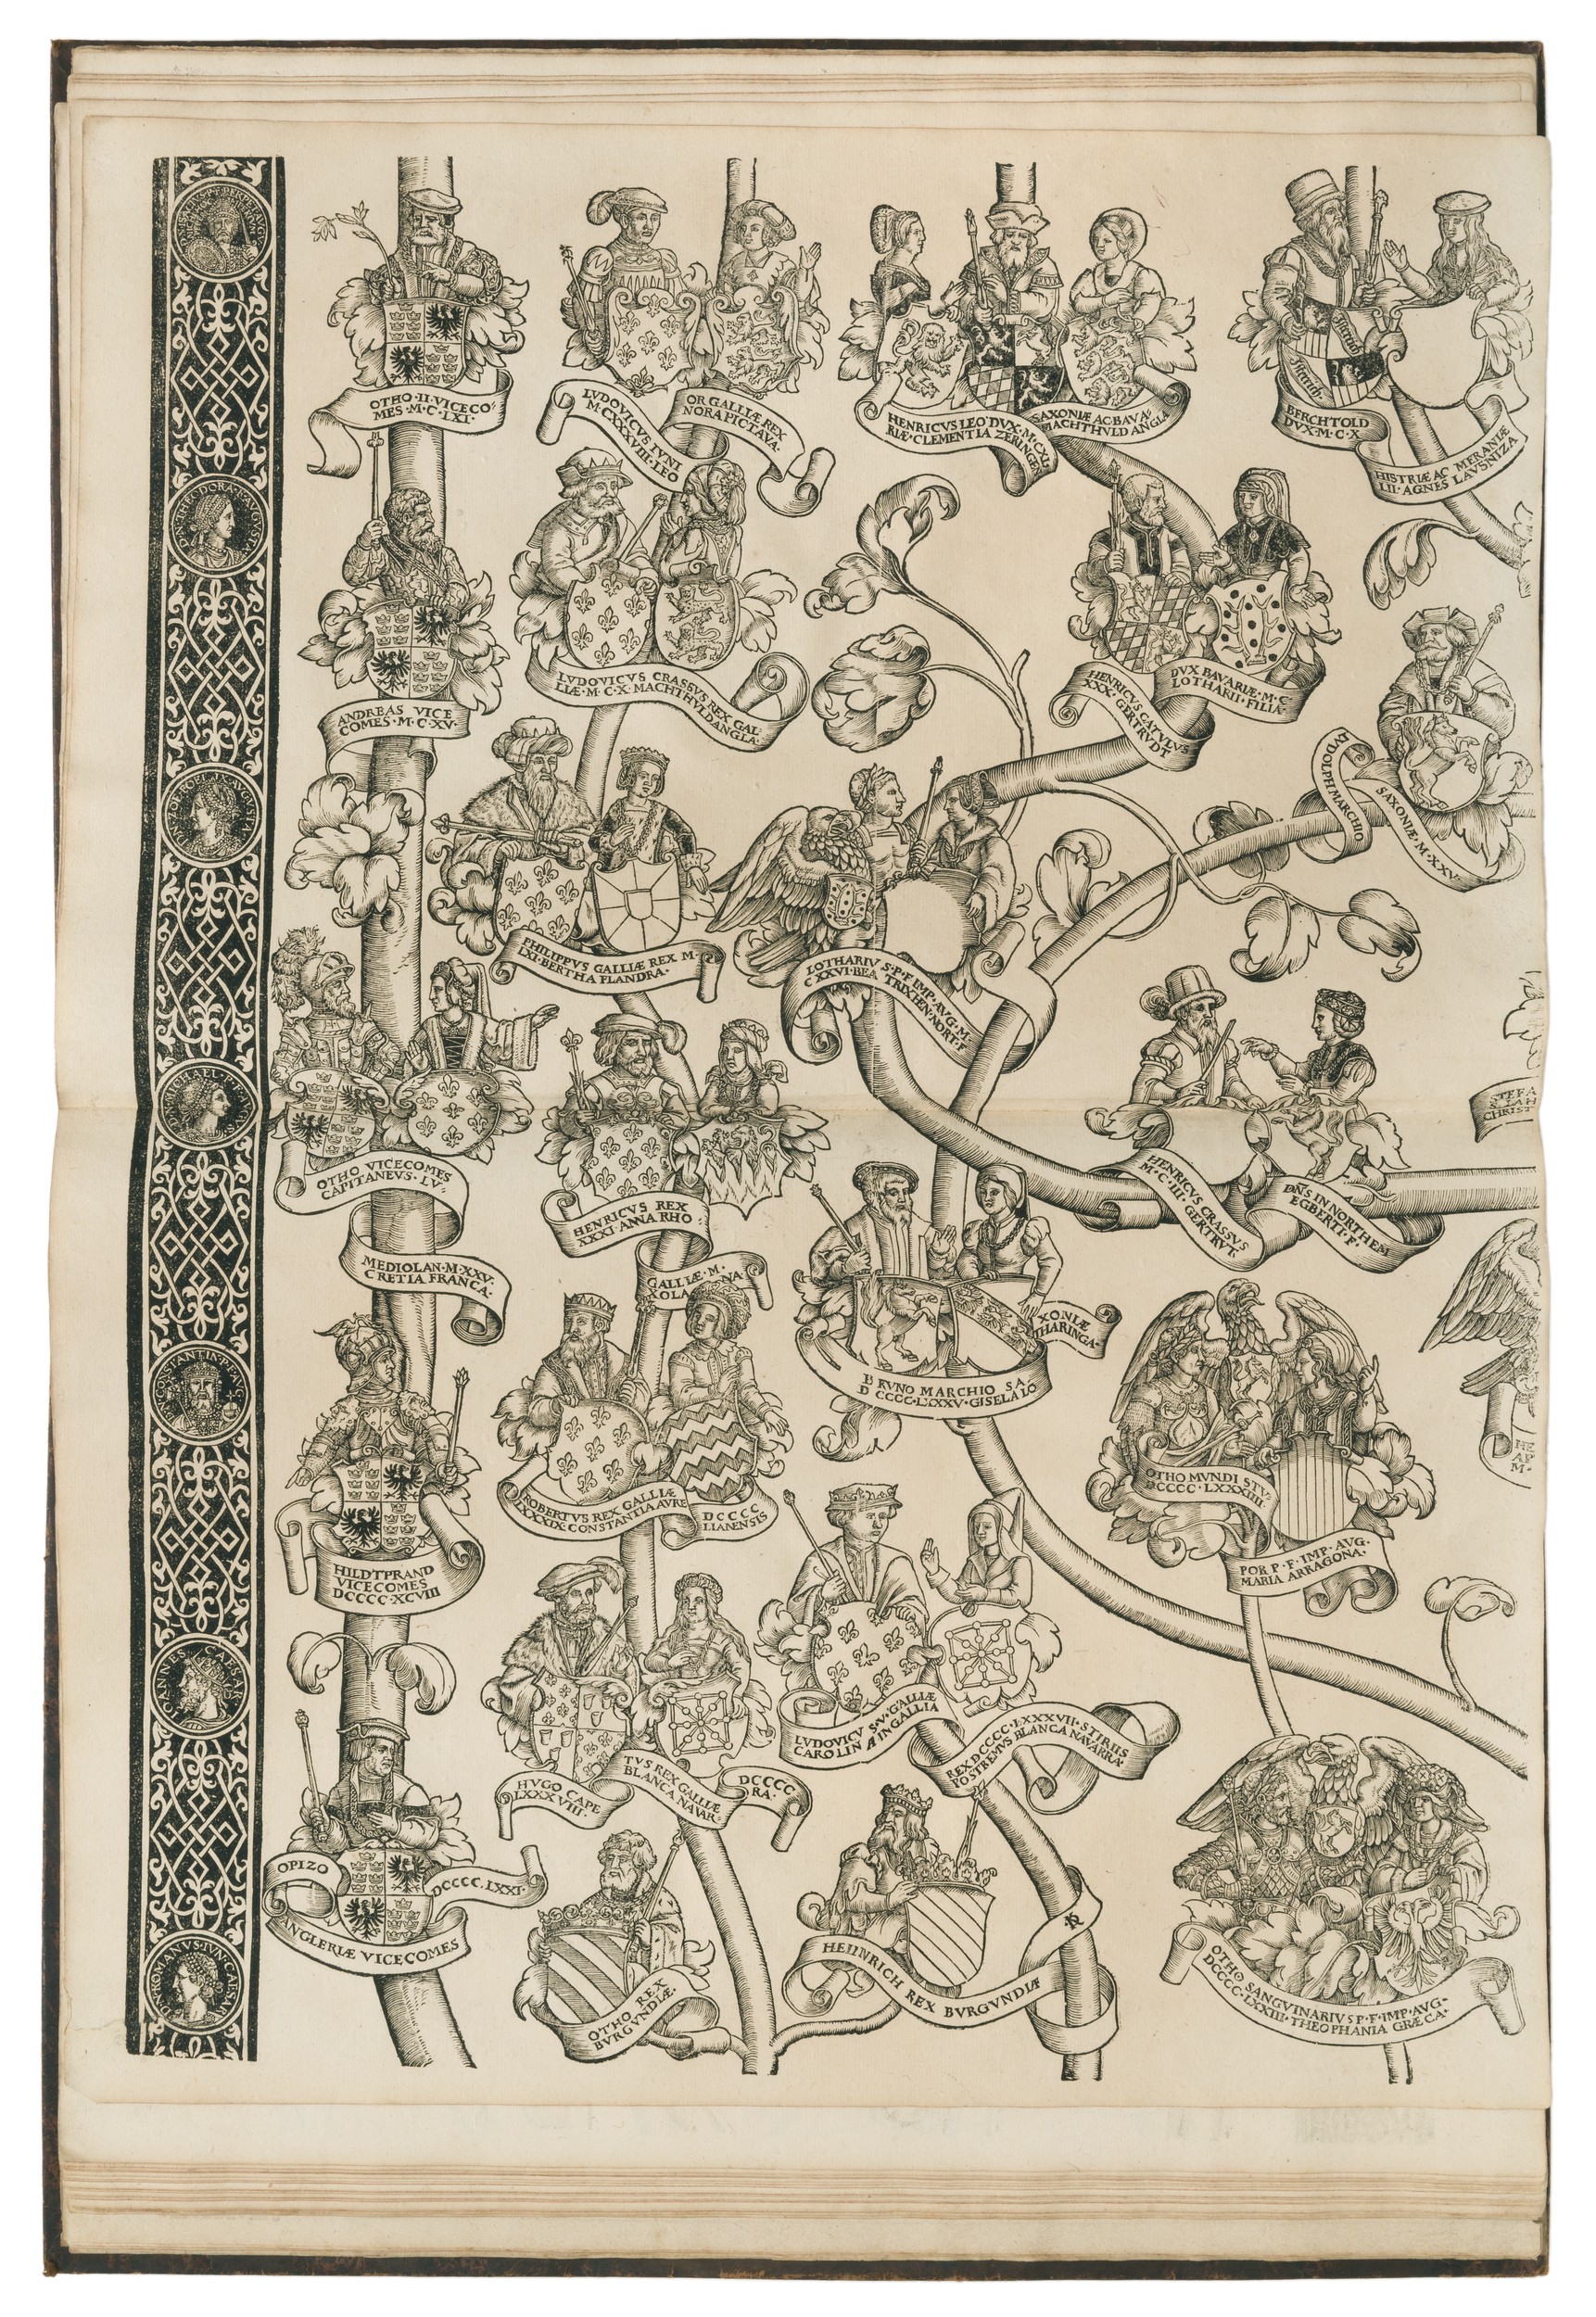 OTHO·II·VICECO⸗
MES·M·C·LXI·
LVDOVICVS IVNI
M·CXXXVIII·LEO
OR GALLIÆ REX
NORA PICTAVA·
HENRICVS LEO DVX·M·CXL·
RIÆ·CLEMENTIA ZERINGEN
SAXONIÆ AC BAVA⸗
MACHTHVLD ANGLA
BERCHTOLD
DVX·M·C·X·
HISTRIÆ AC MERANIÆ
LII·AGNES LAVSNIZA
ANDREAS VICE
COMES·M·C·XV·
LVDOVICVS CRASSVS REX GAL⸗
LIÆ·M·C·X·MACHTHVLD ANGLA·
HENRICVS CATVLVS
XXX·GERTRVDT
DVX BAVARIÆ·M·C·
LOTHARII·FILIA·
LVDOLPH MARCHIO
SAXONIÆ·M·XXV·
PHILIPPVS GALLIÆ REX M·
LXI·BERTHA FLANDRA·
LOTHARIV S·P·F·IMP·AVG·M·
CXXVI·BEA TRIX HEN·NORT·F·
OTHO VICECOMES
CAPITANEVS·LV⸗
MEDIOLAN·M·XXV·
CRETIA FRANCA·
HENRICVS REX
XXXI·ANNA RHO
GALLIÆ·M·
XOLA NA
HENRICVS CRASSVS
M·C·III·GERTRVT·
DNS IN NORTHEM
EGBERTI·F·
STEFA
CHRIST
BRVNO MARCHIO SA
D CCCC·LXXXV·GISELA LO
XONIÆ
THARINGA·
ROBERTVS REX GALLIÆ
LXXXXIX CONSTANTIA AVRE
DCCCC
LIANENSIS
OTHO MVNDI STV⸗
DCCCC·LXXXIIII·
POR P·F·IMP·AVG·
MARIA ARRAGONA·
HILDTPRAND
VICECOMES
DCCCC·XCVIII
HVGO CAPE
LXXXVIII·
TVS REX GALLIÆ
BLANCA NAVAR⸗
DCCCC
RA·
LVDOVICV S·V·GALLIÆ
CAROLIN A IN GALLIA
REX DCCCC·LXXXVII·STIRIIS
POSTREMVS BLANCA NAVARRA·
OPIZO
DCCCC·LXXI·
ANGLERIÆ VICECOMES
OTHO REX
BVRGVNDIÆ·
HEINRICH REX BVRGVNDIÆ
OTHO SANGVINARIVS P·F·IMP·AVG·
DCCCC·LXXIII·THEOPHANIA GRÆCA·